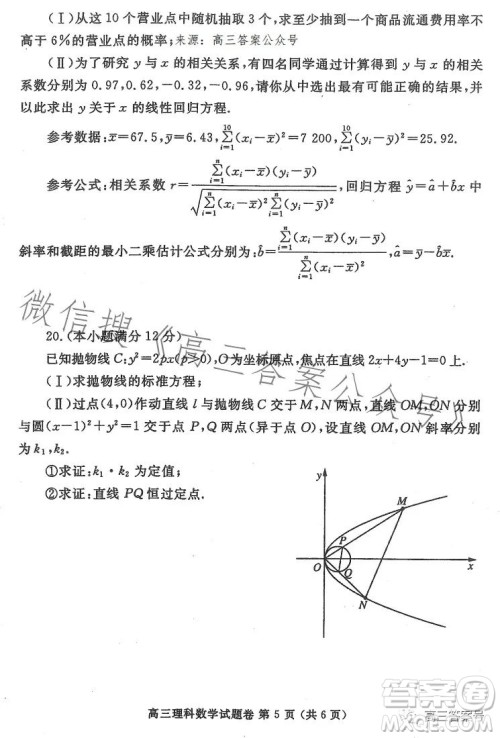 (Ⅰ)从这10个营业点中随机抽取3个,求至少抽到一个商品流通费用率不
高于6%的营业点的概率;来源:高三答案公众号
(Ⅱ)为了研究y与x的相关关系,有四名同学通过计算得到y与x的相关
系数分别为0.97,0.62,-0.32,-0.96,请你从中选出最有可能正确的结果,并
以此求出y关于x的线性回归方程.
参考数据:x̄=67.5,ȳ=6.43,∑_{i=1}^{10}(x_i-x̄)²=7 200,∑_{i=1}^{10}(y_i-ȳ)²=25.92.
参考公式:相关系数r=∑_{i=1}^{n}(x_i-x̄)(y_i-ȳ)/√(∑_{i=1}^{n}(x_i-x̄)²∑_{i=1}^{n}(y_i-ȳ)²),回归方程ŷ=â+b̂x中
斜率和截距的最小二乘估计公式分别为:b̂=∑_{i=1}^{n}(x_i-x̄)(y_i-ȳ)/∑_{i=1}^{n}(x_i-x̄)²,â=ȳ-b̂x̄.
微信搜《高三答案公众号》
20.(本小题满分12分)
已知抛物线C:y²=2px(p>0),O为坐标原点,焦点在直线2x+4y-1=0上.
(Ⅰ)求抛物线的标准方程;
(Ⅱ)过点(4,0)作动直线l与抛物线C交于M,N两点,直线OM,ON分别
与圆(x-1)²+y²=1交于点P,Q两点(异于点O),设直线OM,ON斜率分别
为k₁,k₂.
①求证:k₁·k₂为定值;
②求证:直线PQ恒过定点.
y
M
P
O
Q
x
N
高三理科数学试题卷 第5页(共6页)
高三答案号
答案圈
MXQE.COM